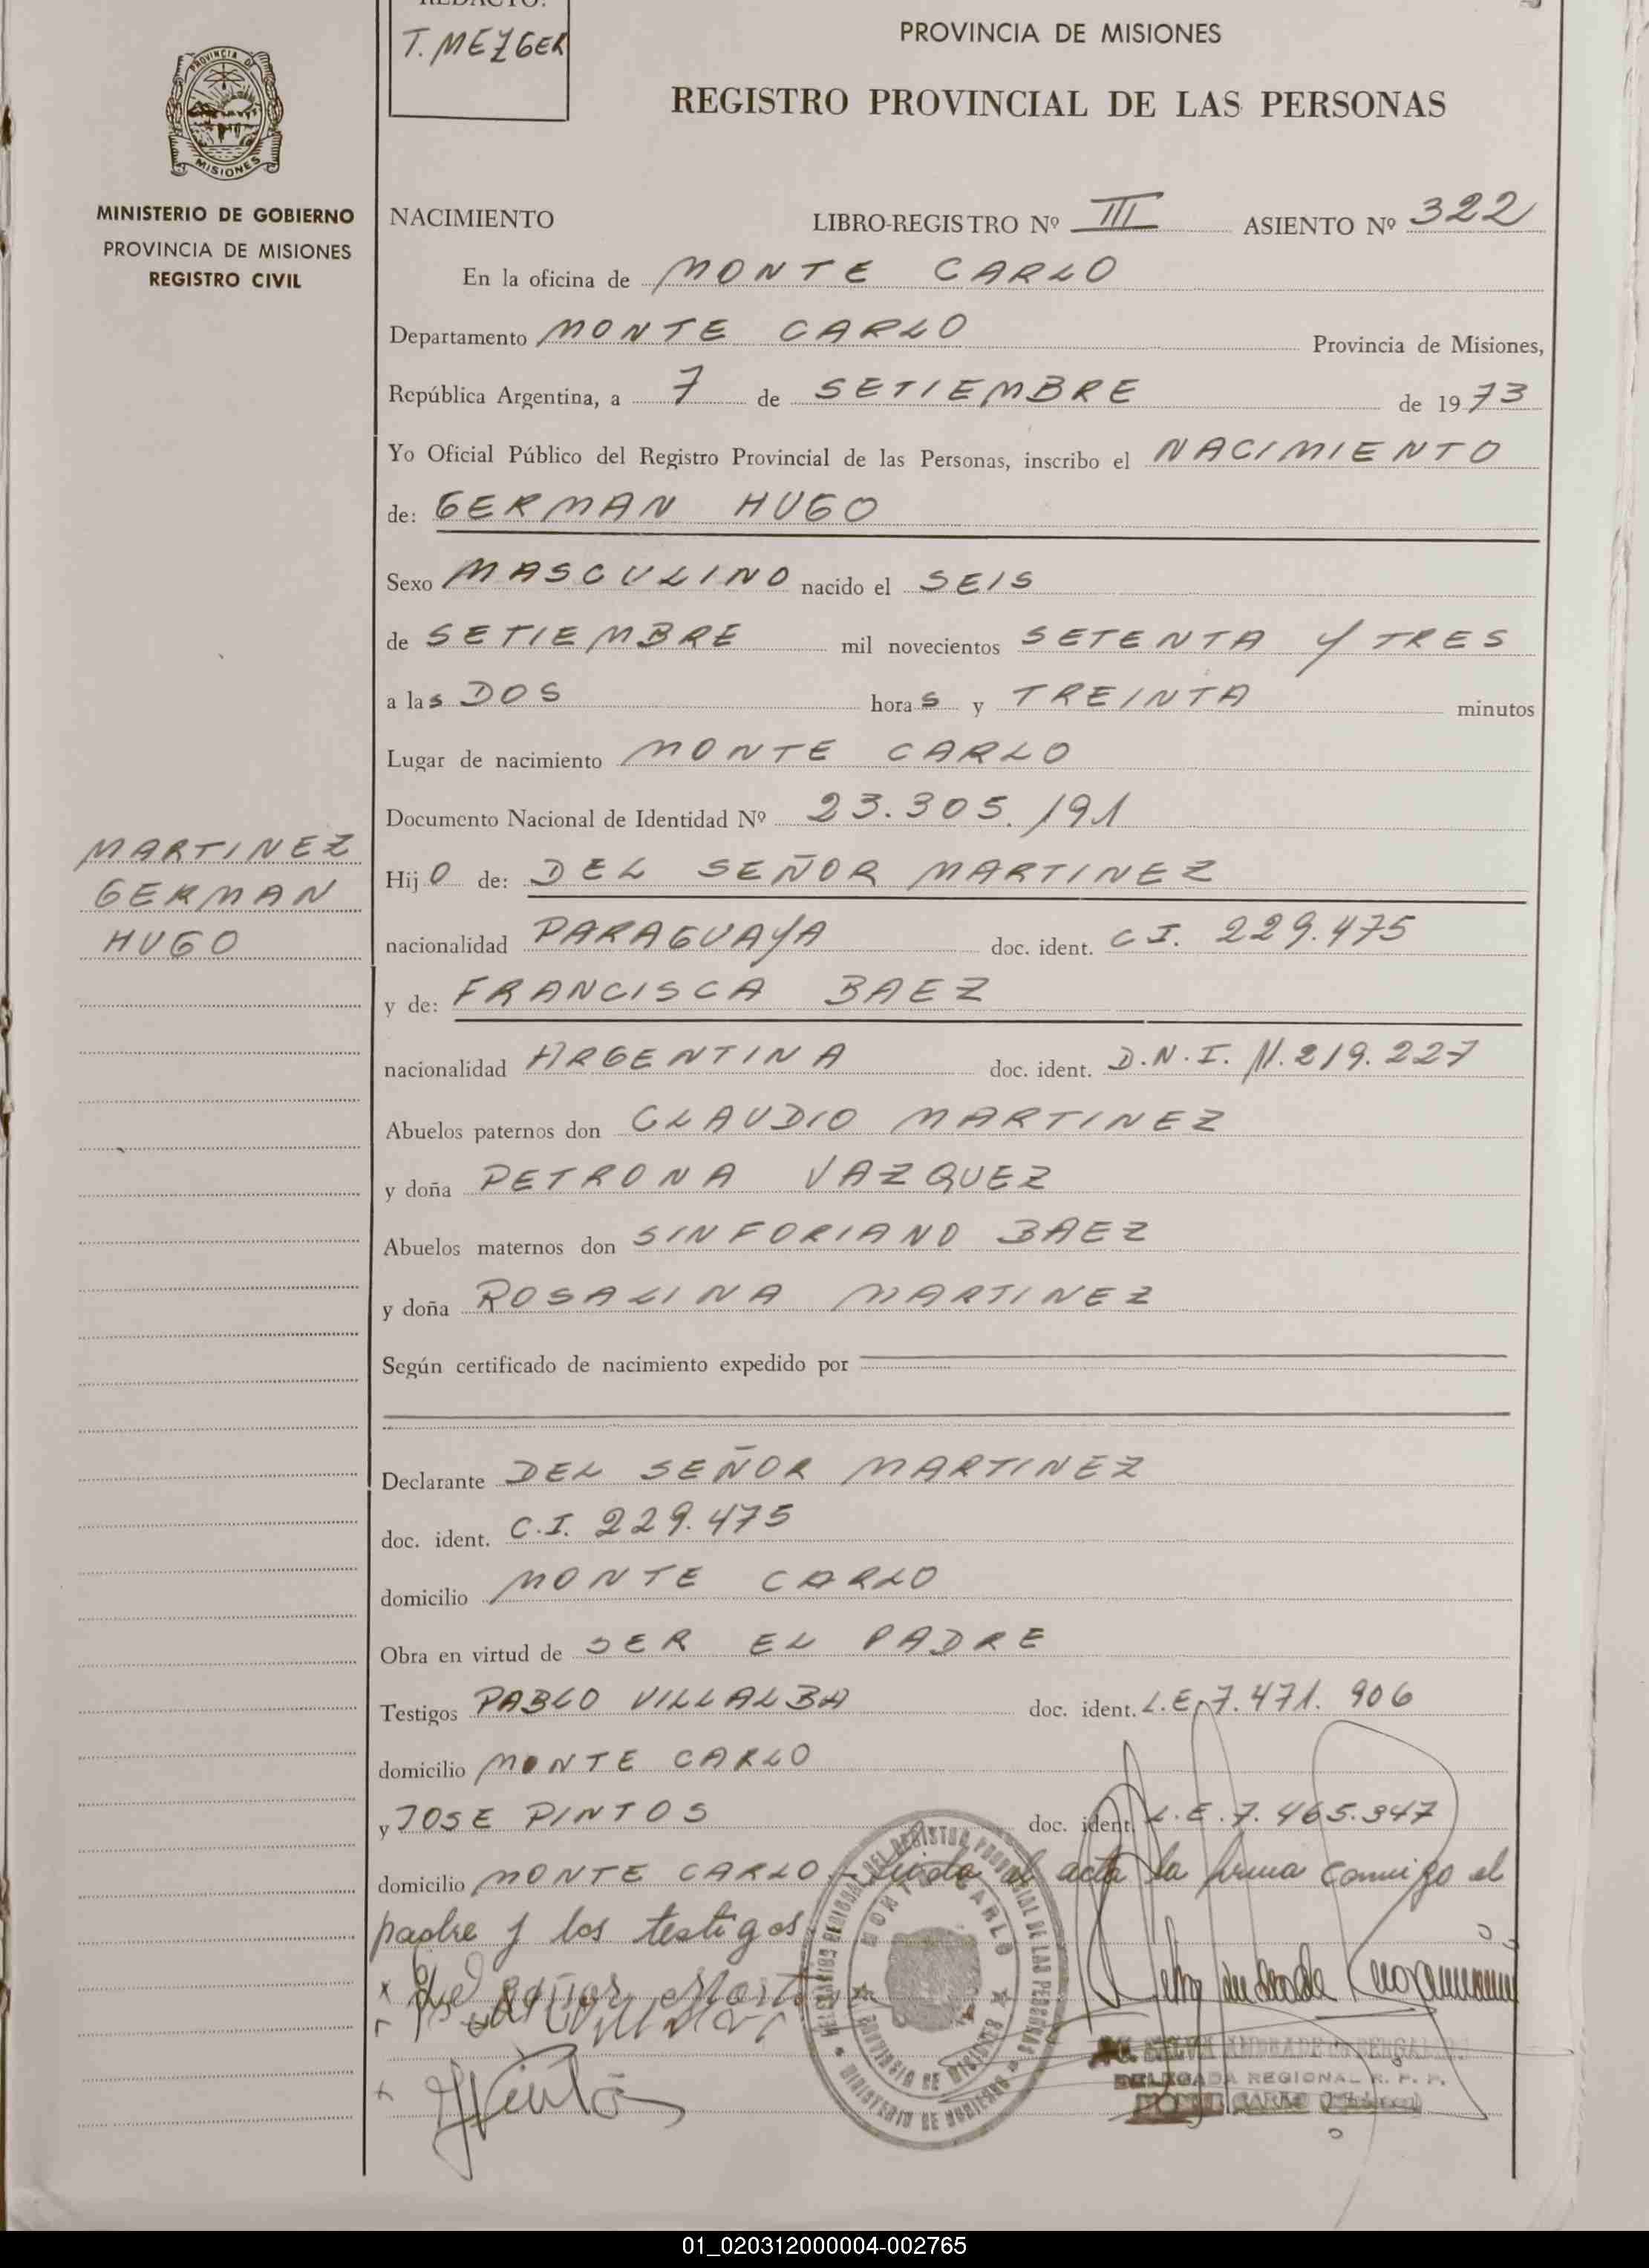 REDACTO:
T. MEZGER
PROVINCIA DE MISIONES
REGISTRO PROVINCIAL DE LAS PERSONAS
PROVINCIA DE
MISIONES
MINISTERIO DE GOBIERNO
PROVINCIA DE MISIONES
REGISTRO CIVIL
NACIMIENTO LIBRO-REGISTRO Nº III ASIENTO Nº 322
En la oficina de MONTE CARLO
Departamento MONTE CARLO Provincia de Misiones,
República Argentina, a 7 de SETIEMBRE de 1973
Yo Oficial Público del Registro Provincial de las Personas, inscribo el NACIMIENTO
de: GERMAN HUGO
Sexo MASCULINO nacido el SEIS
de SETIEMBRE mil novecientos SETENTA Y TRES
a las DOS horas y TREINTA minutos
Lugar de nacimiento MONTE CARLO
Documento Nacional de Identidad Nº 23.305.191
MARTINEZ
GERMAN
HUGO
Hijo de: DEL SEÑOR MARTINEZ
nacionalidad PARAGUAYA doc. ident. C I. 229.475
y de: FRANCISCA BAEZ
nacionalidad ARGENTINA doc. ident. D.N.I. 11.219.227
Abuelos paternos don CLAUDIO MARTINEZ
y doña PETRONA VAZQUEZ
Abuelos maternos don SINFORIANO BAEZ
y doña ROSALINA MARTINEZ
Según certificado de nacimiento expedido por
Declarante DEL SEÑOR MARTINEZ
doc. ident. C.I. 229.475
domicilio MONTE CARLO
Obra en virtud de SER EL PADRE
Testigos PABLO VILLALBA doc. ident. L.E. 7.471.906
domicilio MONTE CARLO
y JOSE PINTOS doc. ident. L.E. 7.465.347
domicilio MONTE CARLO.- Leida el acta la firma conmigo el
padre y los testigos
MONTE CARLO
PROVINCIA DE MISIONES
MINISTERIO DE GOBIERNO
DELEGADA REGIONAL R. P. P.
01_020312000004-002765